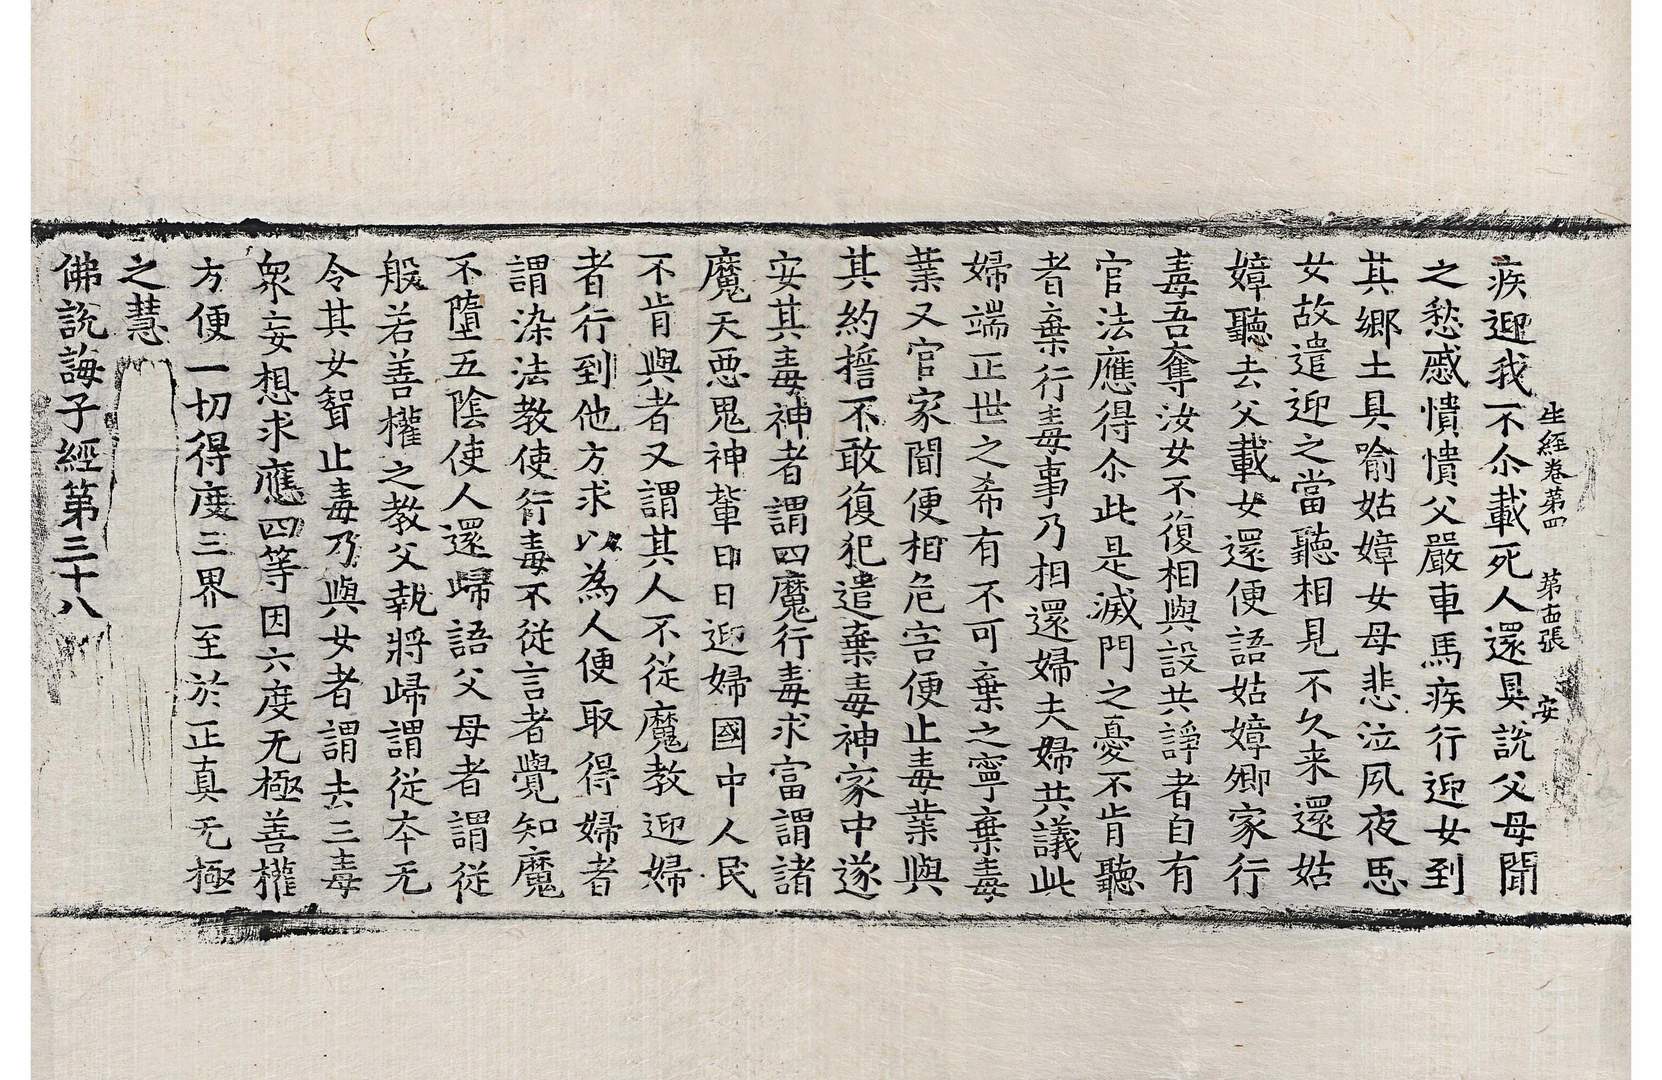 生經卷第四 第十五張 安
疾迎我不尒載死人還具說父母聞
之愁慼憒憒父嚴車馬疾行迎女到
其鄉土具喻姑嫜女母悲泣夙夜思
女故遣迎之當聽相見不久来還姑
嫜聽去父載女還便語姑嫜卿家行
毒吾奪汝女不復相與設共諍者自有
官法應得尒此是滅門之憂不肯聽
者棄行毒事乃相還婦夫婦共議此
婦端正世之希有不可棄之寧棄毒
業又官家聞便相危害便止毒業與
其約誓不敢復犯遣棄毒神家中遂
安其毒神者謂四魔行毒求富謂諸
魔天惡鬼神輩曰日迎婦國中人民
不肯與者又謂其人不從魔教迎婦
者行到他方求以為人便取得婦者
謂染法教使行毒不從言者覺知魔
不墮五陰使人還歸語父母者謂從
般若善權之教父執將歸謂從本无
令其女智止毒乃與女者謂去三毒
衆妄想求應四等因六度无極善權
方便一切得度三界至於正真无極
之慧
佛說誨子經第三十八